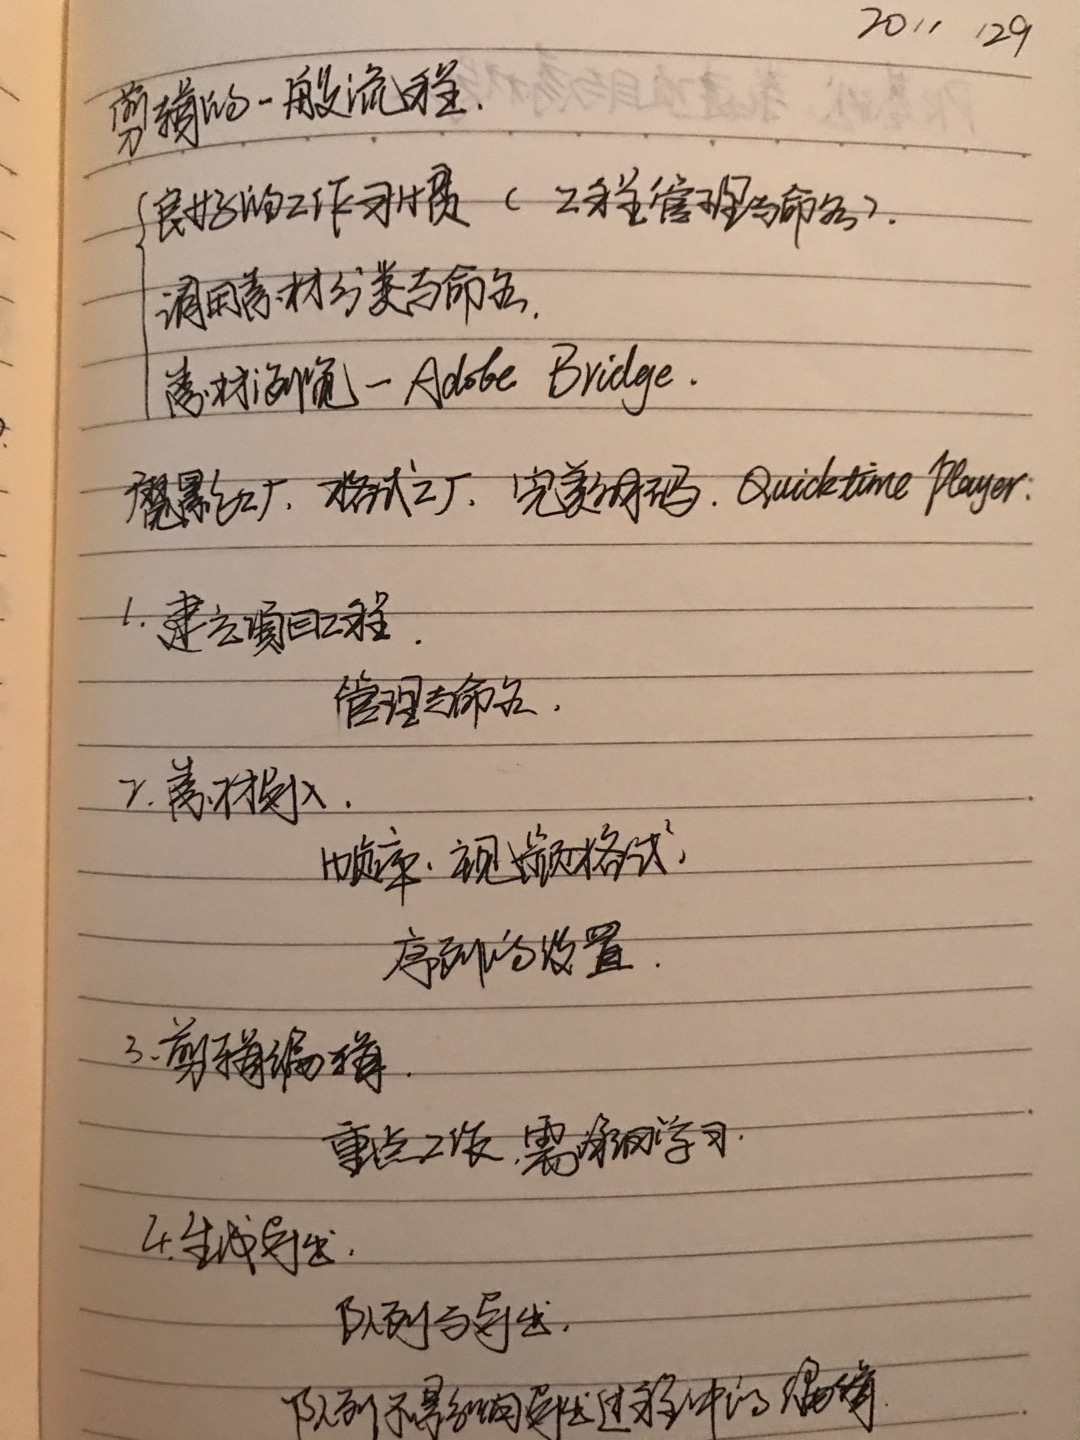 2011 129
剪辑的一般流程.
良好的工作习惯(工程管理与命名).
调用素材分类与命名.
素材浏览—Adobe Bridge.
魔影工厂.格式工厂.完美解码.Quicktime Player.
1.建立项目工程.
管理与命名.
2.素材导入.
帧率.视频格式,
序列的设置.
3.剪辑编辑.
重点工作,需详细学习.
4.生成导出.
队列与导出.
队列不影响导出过程中的编辑.